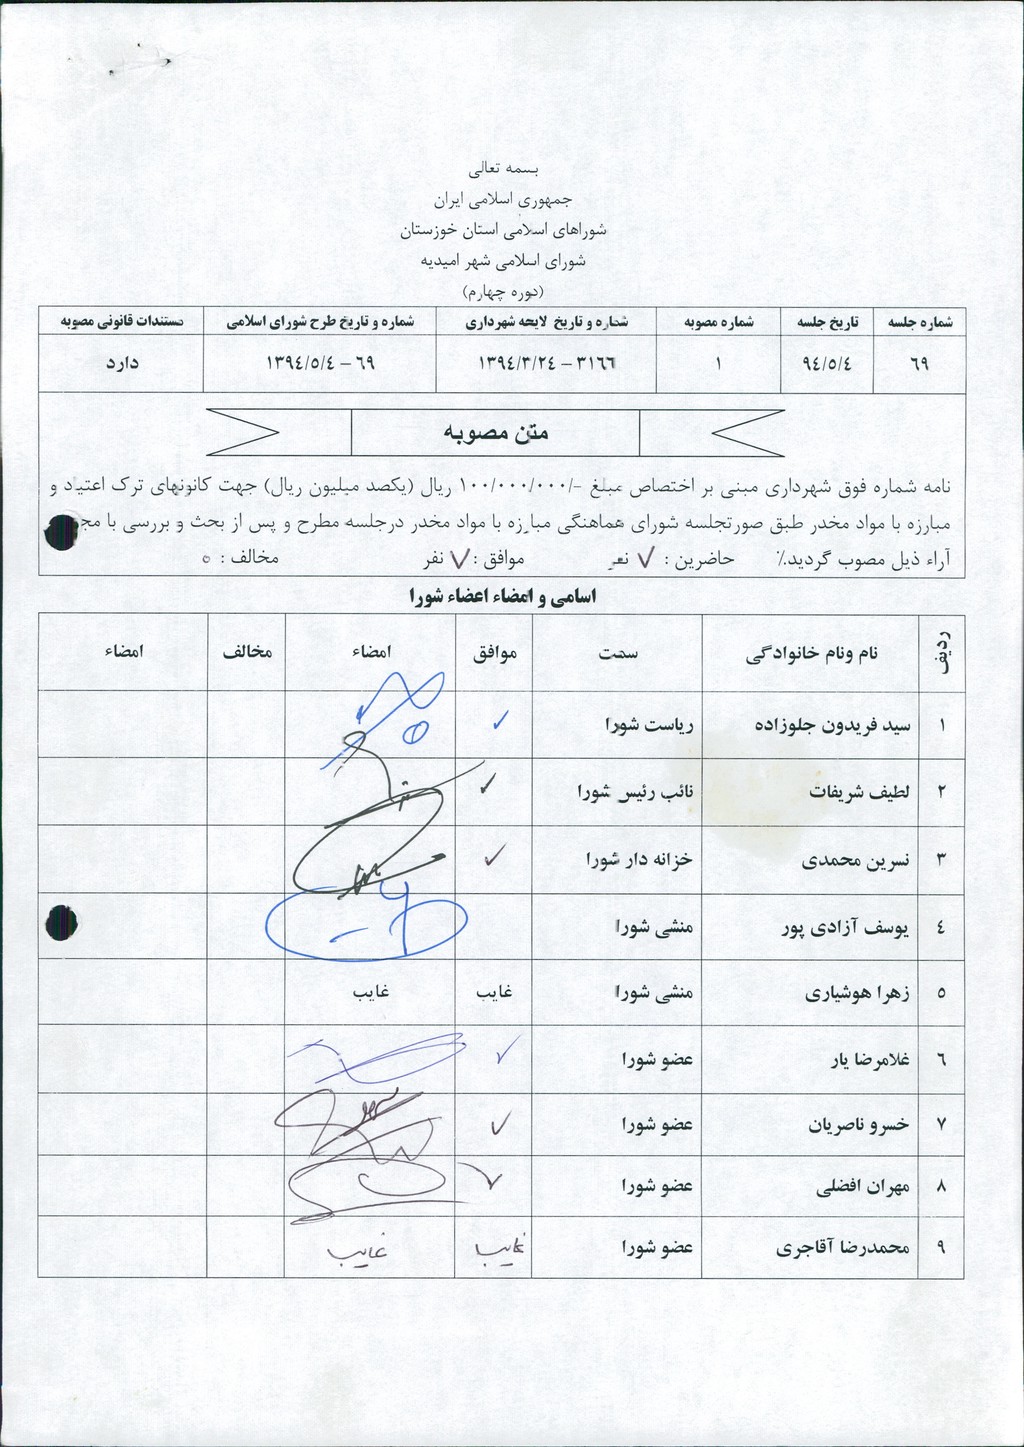 بسمه تعالی
جمهوری اسلامی ایران
شوراهای اسلامی استان خوزستان
شورای اسلامی شهر امیدیه
(دوره چهارم)
شماره جلسه تاریخ جلسه شماره مصوبه شماره و تاریخ لایحه شهرداری شماره و تاریخ طرح شورای اسلامی مستندات قانونی مصوبه
٦٩ ٩٤/٥/٤ ١ ٣١٦٦ – ١٣٩٤/٣/٢٤ ٦٩ – ١٣٩٤/٥/٤ دارد
متن مصوبه
نامه شماره فوق شهرداری مبنی بر اختصاص مبلغ -/١٠٠/٠٠٠/٠٠٠ ریال (یکصد میلیون ریال) جهت کانونهای ترک اعتیاد و
مبارزه با مواد مخدر طبق صورتجلسه شورای هماهنگی مبارزه با مواد مخدر درجلسه مطرح و پس از بحث و بررسی با
آراء ذیل مصوب گردید.٪ حاضرین : ٧ نفر موافق : ٧ نفر مخالف : ٥
اسامی و امضاء اعضاء شورا
ردیف نام ونام خانوادگی سمت موافق امضاء مخالف امضاء
١ سید فریدون جلوزاده ریاست شورا ✓
٢ لطیف شریفات نائب رئیس شورا ✓
٣ نسرین محمدی خزانه دار شورا ✓
٤ یوسف آزادی پور منشی شورا
٥ زهرا هوشیاری منشی شورا غایب غایب
٦ غلامرضا یار عضو شورا ✓
٧ خسرو ناصریان عضو شورا ✓
٨ مهران افضلی عضو شورا ✓
٩ محمدرضا آقاجری عضو شورا غایب غایب